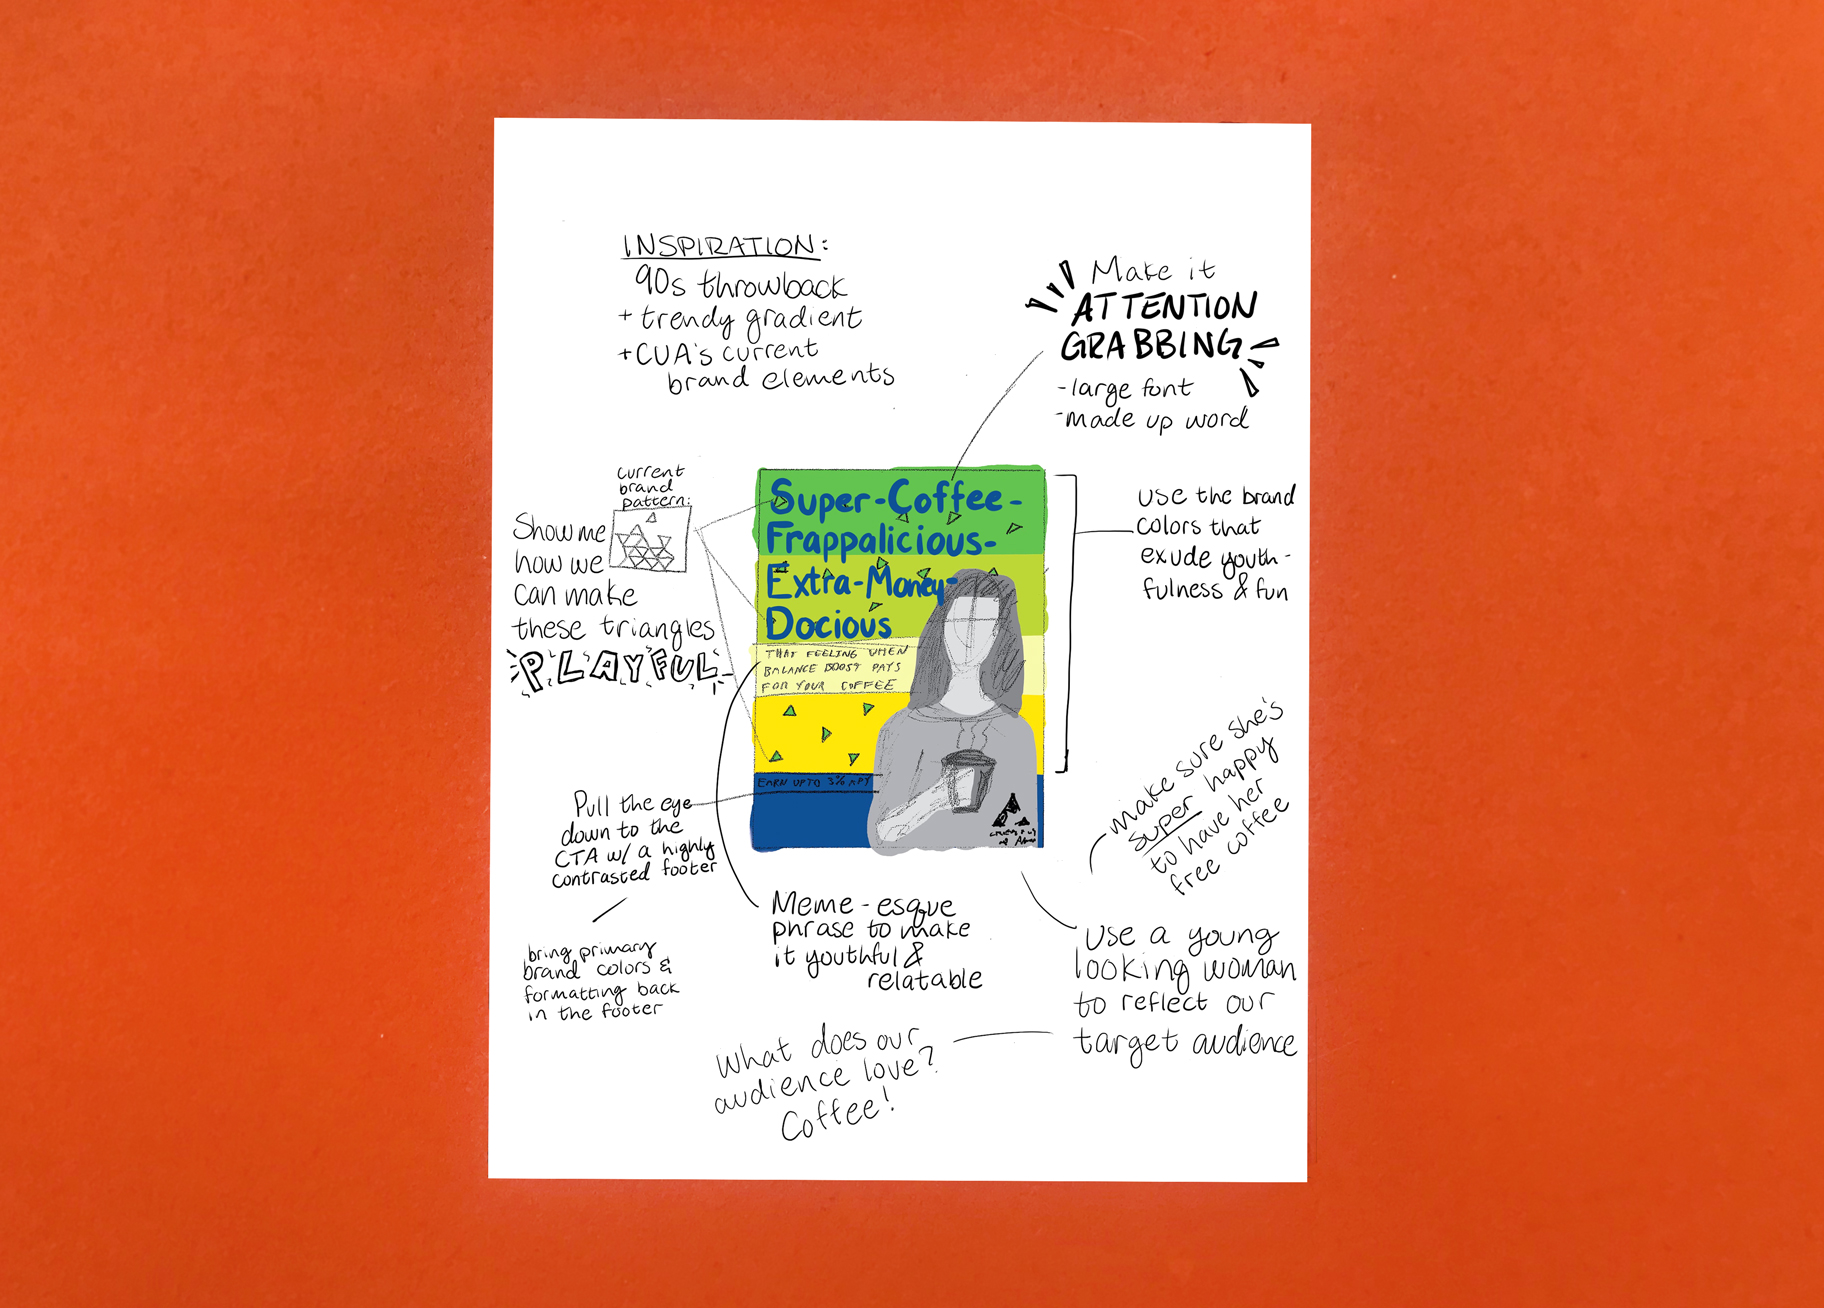 INSPIRATION:
90s throwback
+ trendy gradient
+ CUA's current
brand elements
Make it
ATTENTION
GRABBING
- large font
- made up word
current
brand
pattern:
Show me
how we
can make
these triangles
PLAYFUL
Super-Coffee-
Frappalicious-
Extra-Money-
Docious
THAT FEELING WHEN
BALANCE BOOST PAYS
FOR YOUR COFFEE
EARN UP TO 3% APY
use the brand
colors that
exude youth-
fulness & fun
make sure she's
super happy
to have her
free coffee
Pull the eye
down to the
CTA w/ a highly
contrasted footer
bring primary
brand colors &
formatting back
in the footer
Meme-esque
phrase to make
it youthful &
relatable
Use a young
looking woman
to reflect our
target audience
What does our
audience love?
Coffee!